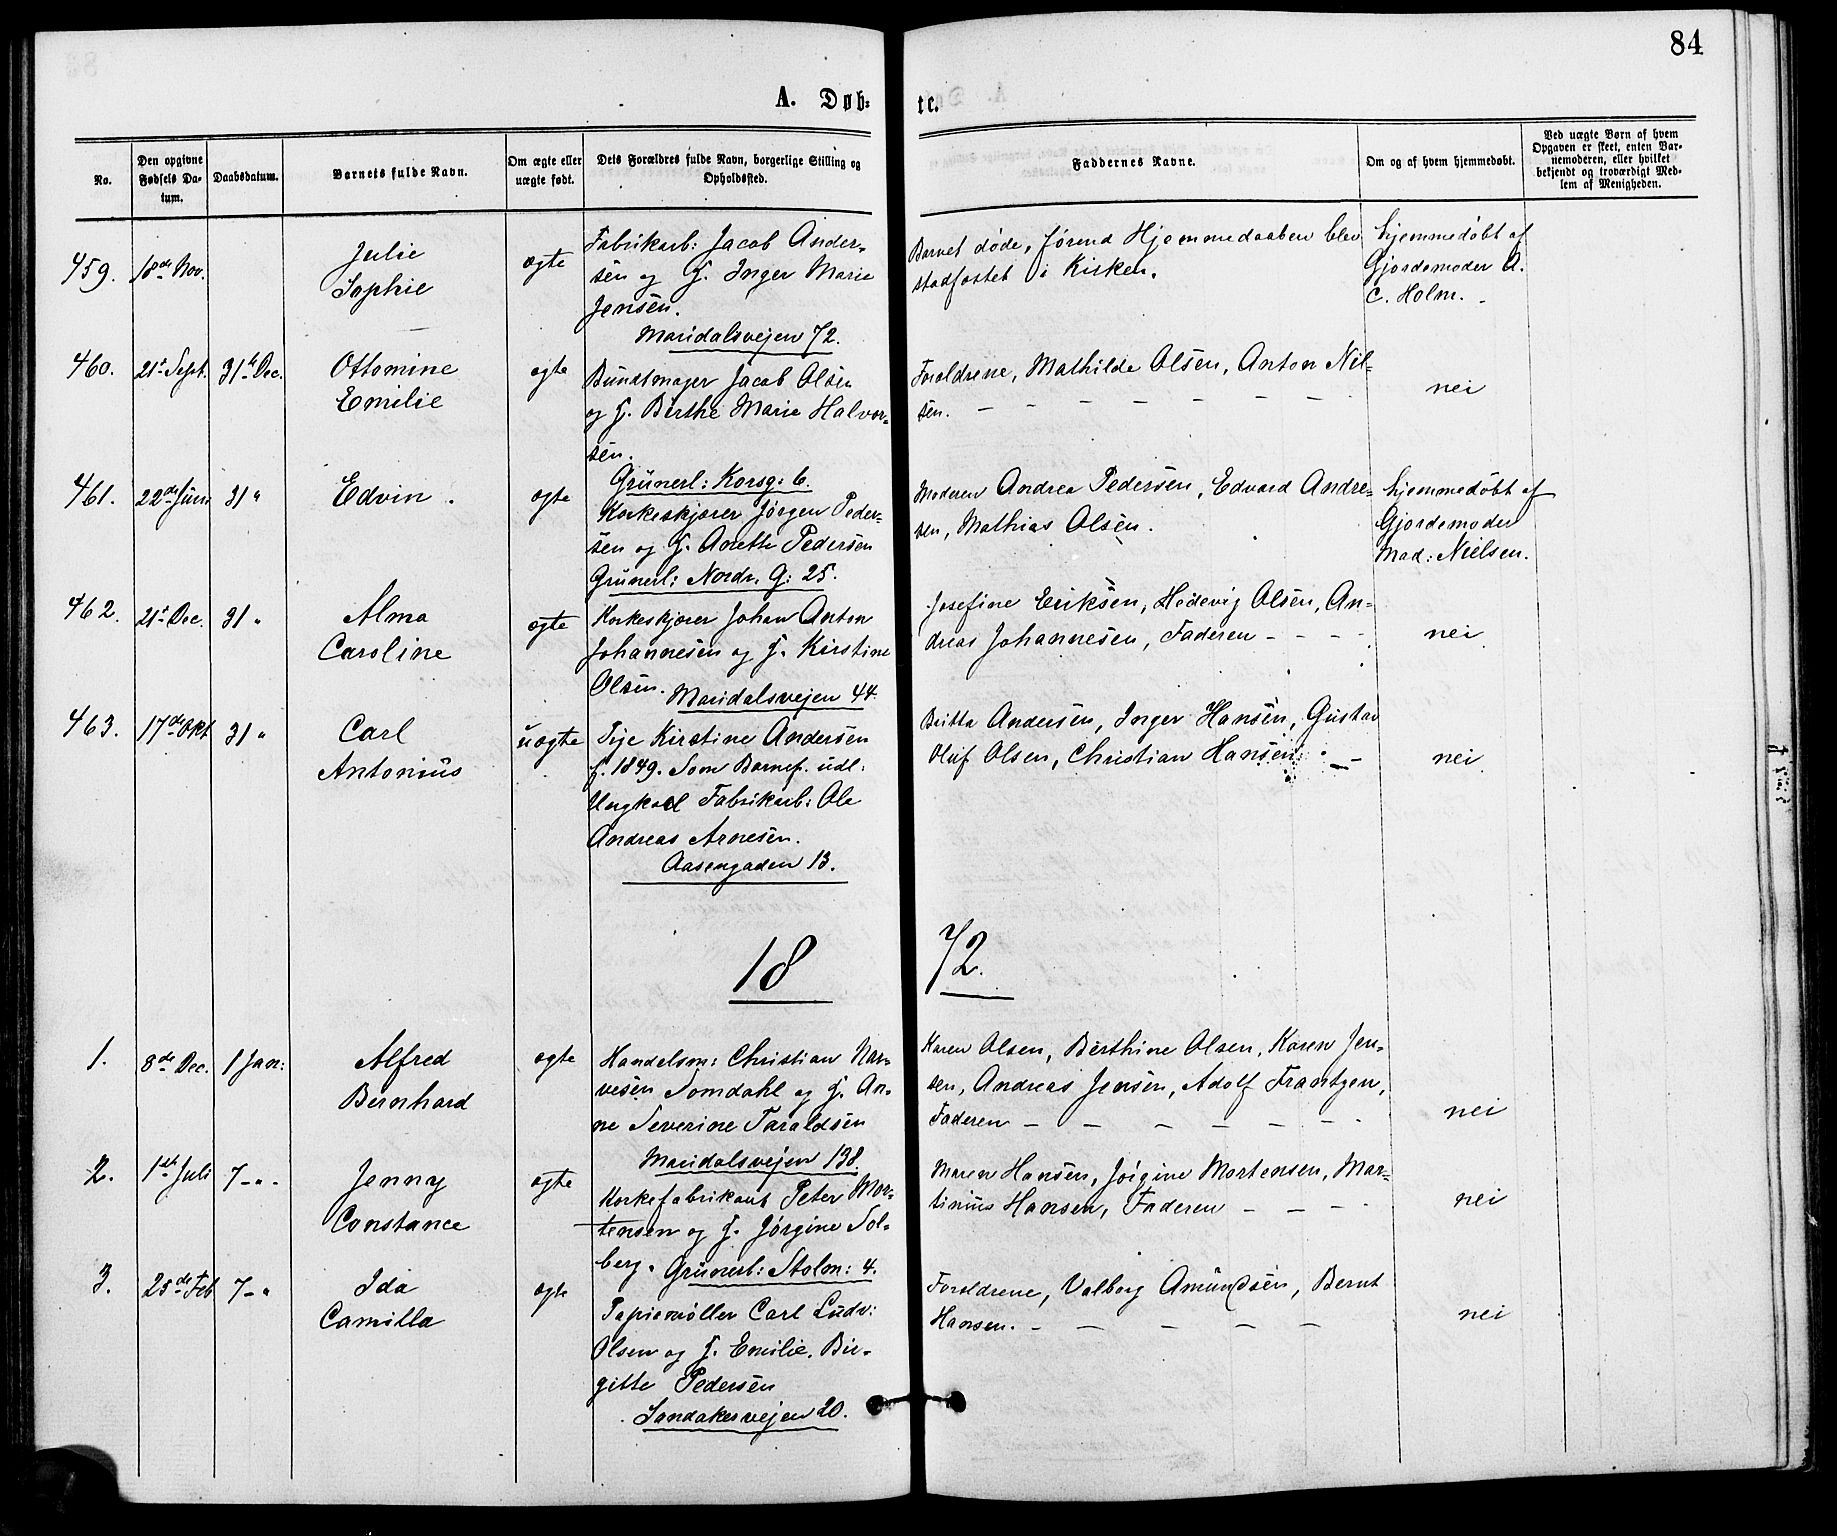 84
A. Døb-
te.
No.
Den opgivne Fødsels Da-tum.
Daabsdatum.
Barnets fulde Navn.
Om ægte eller uægte født.
Dets Forældres fulde Navn, borgerlige Stilling og Opholdssted.
Faddernes Navne.
Om og af hvem hjemmedøbt.
Ved uægte Børn af hvem Opgaven er skeet, enten Bar-nemoderen, eller hvilket bekjendt og troværdigt Med-lem af Menigheden.
459.
18de Nov.
Julie
Sophie
ægte
Fabrikarb: Jacob Ander-
sen og H. Inger Marie
Jensen.
Maridalsvejen 72.
Barnet døde, førend Hjemmedaaben blev
stadfæstet i Kirken.
hjemmedøbt af
Gjordemoder A.
C. Holm.
460.
21st Sept.
31te Dec.
Ottomine
Emilie
ægte
Bundtmager Jacob Olsen
og H. Berthe Marie Halvor-
sen.
Grünerl: Korsg: 6.
Forældrene, Mathilde Olsen, Anton Nil-
sen.
nei
461.
22de Juni
31 "
Edvin.
ægte
Korkeskjærer Jörgen Peder-
sen og H. Anette Pedersen
Grünerl: Nordr. G: 25.
Moderen Andrea Pedersen, Edvard Andre-
sen, Mathias Olsen.
hjemmedøbt af
Gjordemoder
Mad: Nielsen.
462.
21st Dec.
31 "
Alma
Caroline
ægte
Korkeskjærer Johan Anton
Johannesen og H. Kirstine
Olsen.
Maridalsvejen 44.
Josefine Eriksen, Hedevig Olsen, An-
dreas Johannesen, Faderen
nei
463.
17de Okt
31 "
Carl
Antonius
uægte
Pige Kirstine Andersen
f. 1849. Som Barnef. udl:
Ungkarl Fabrikarb: Ole
Andreas Arnesen.
Aasengaden 13.
Britta Andersen, Inger Hansen, Gustav
Oluf Olsen, Christian Hansen.
nei
18
72.
1.
8de Dec.
1 Jan:
Alfred
Bernhard
ægte
Handelsm: Christian Nar-
vesen Somdahl og H. An-
ne Severine Taraldsen
Maridalsvejen 138.
Karen Olsen, Berthine Olsen, Karen Jen-
sen, Andreas Jensen, Adolf Frantzen,
Faderen
nei
2.
1ste Juli
7 - " -
Jenny
Constance
ægte
Korkefabrikant Peter Mor-
tensen og H. Jørgine Sol-
berg.
Grünerl: Stolm: 4.
Maren Hansen, Jörgine Mortensen, Mar-
tinius Hansen, Faderen
nei
3.
25de Feb
7 - "
Ida
Camilla
ægte
Papirmøller Carl Ludv:
Olsen og H. Emilie Bir-
gitte Pedersen
Sandakersvejen 20.
Forældrene, Valborg Amundsen, Bernt
Hansen.
nei